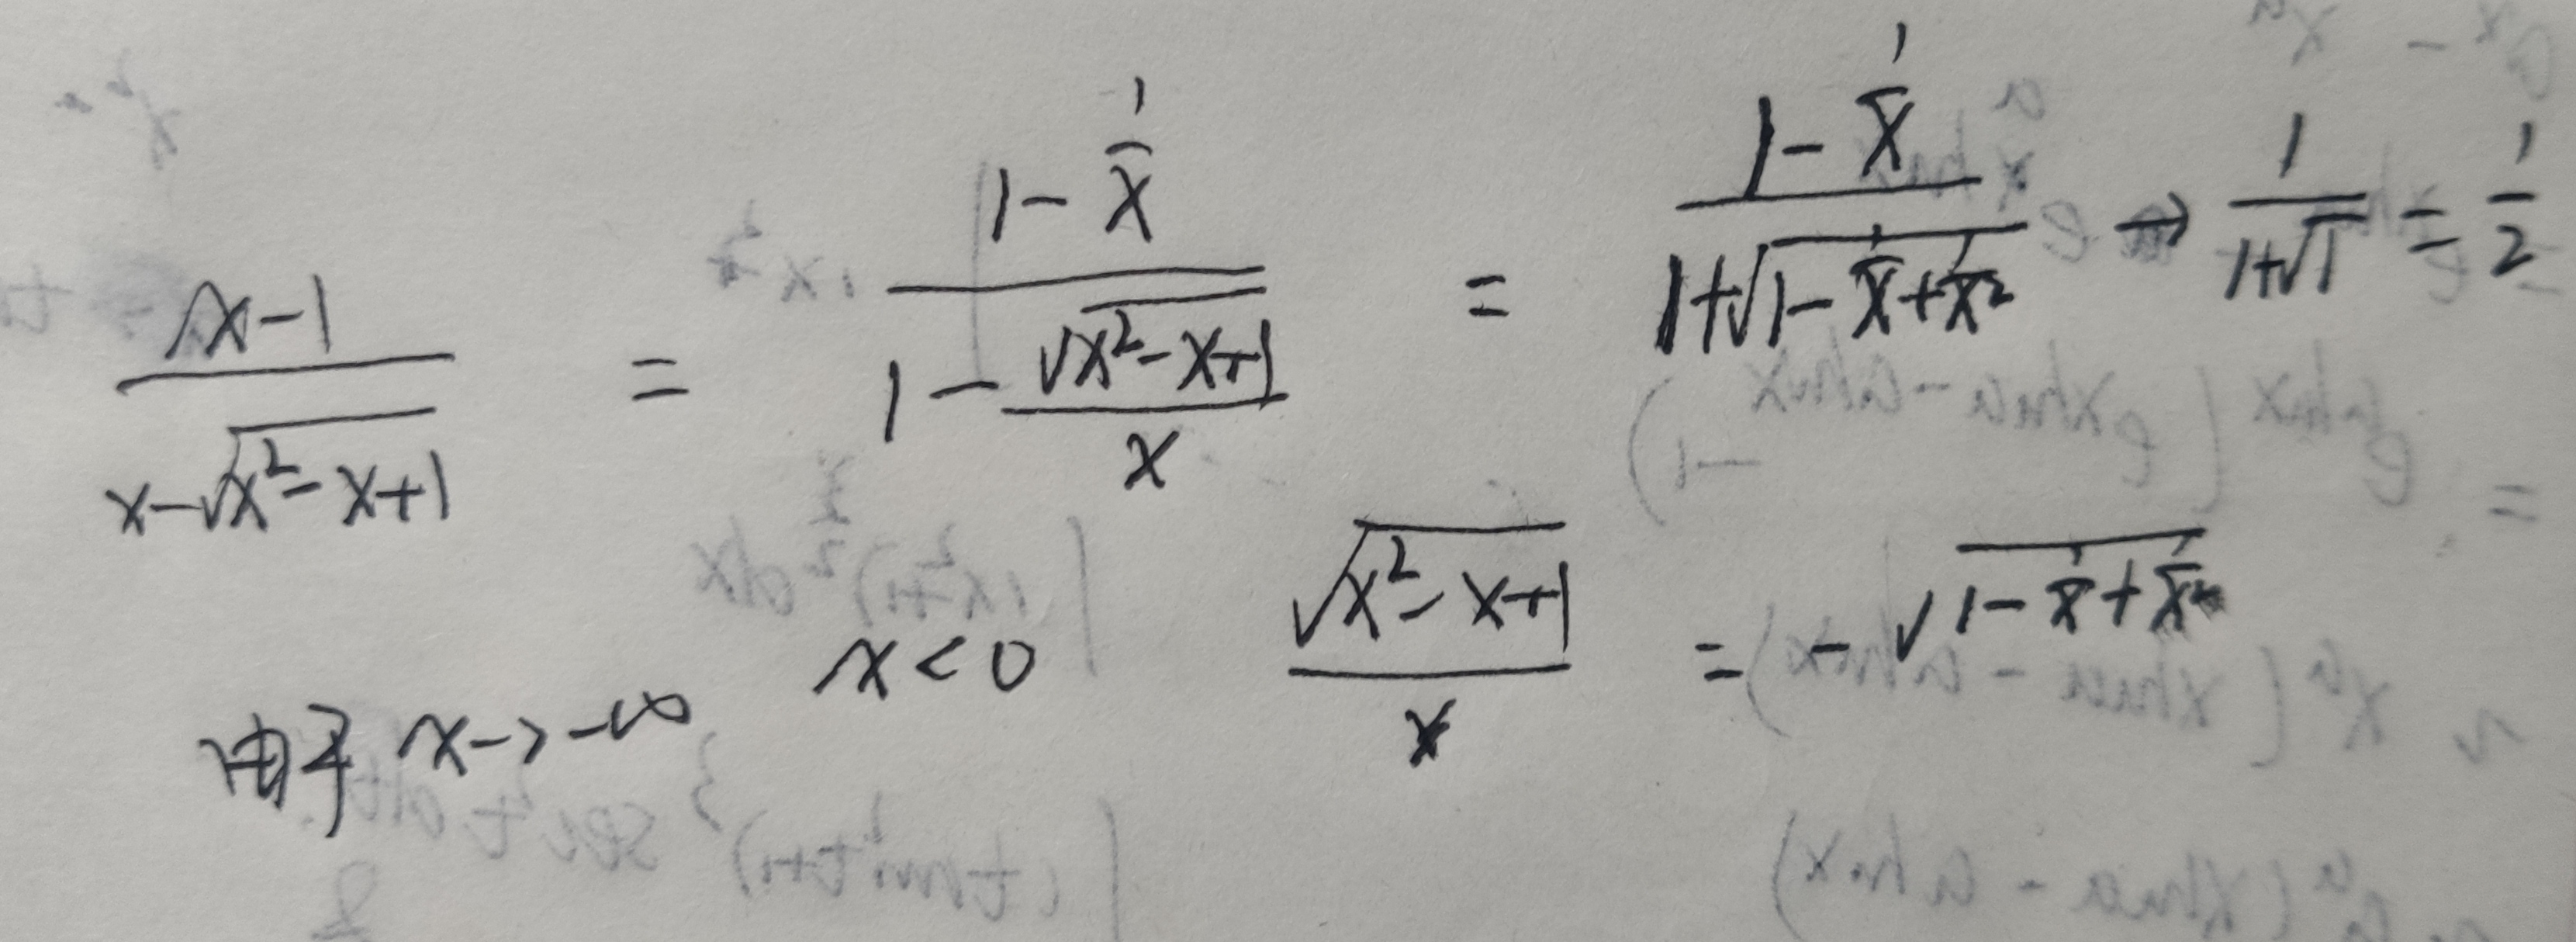 \frac{x-1}{x-\sqrt{x^2-x+1}} = \frac{1-\frac{1}{x}}{1-\frac{\sqrt{x^2-x+1}}{x}} = \frac{1-\frac{1}{x}}{1+\sqrt{1-\frac{1}{x}+\frac{1}{x^2}}} → \frac{1}{1+\sqrt{1}} = \frac{1}{2}
由于 x→-∞ x<0 \frac{\sqrt{x^2-x+1}}{x} = -\sqrt{1-\frac{1}{x}+\frac{1}{x^2}}